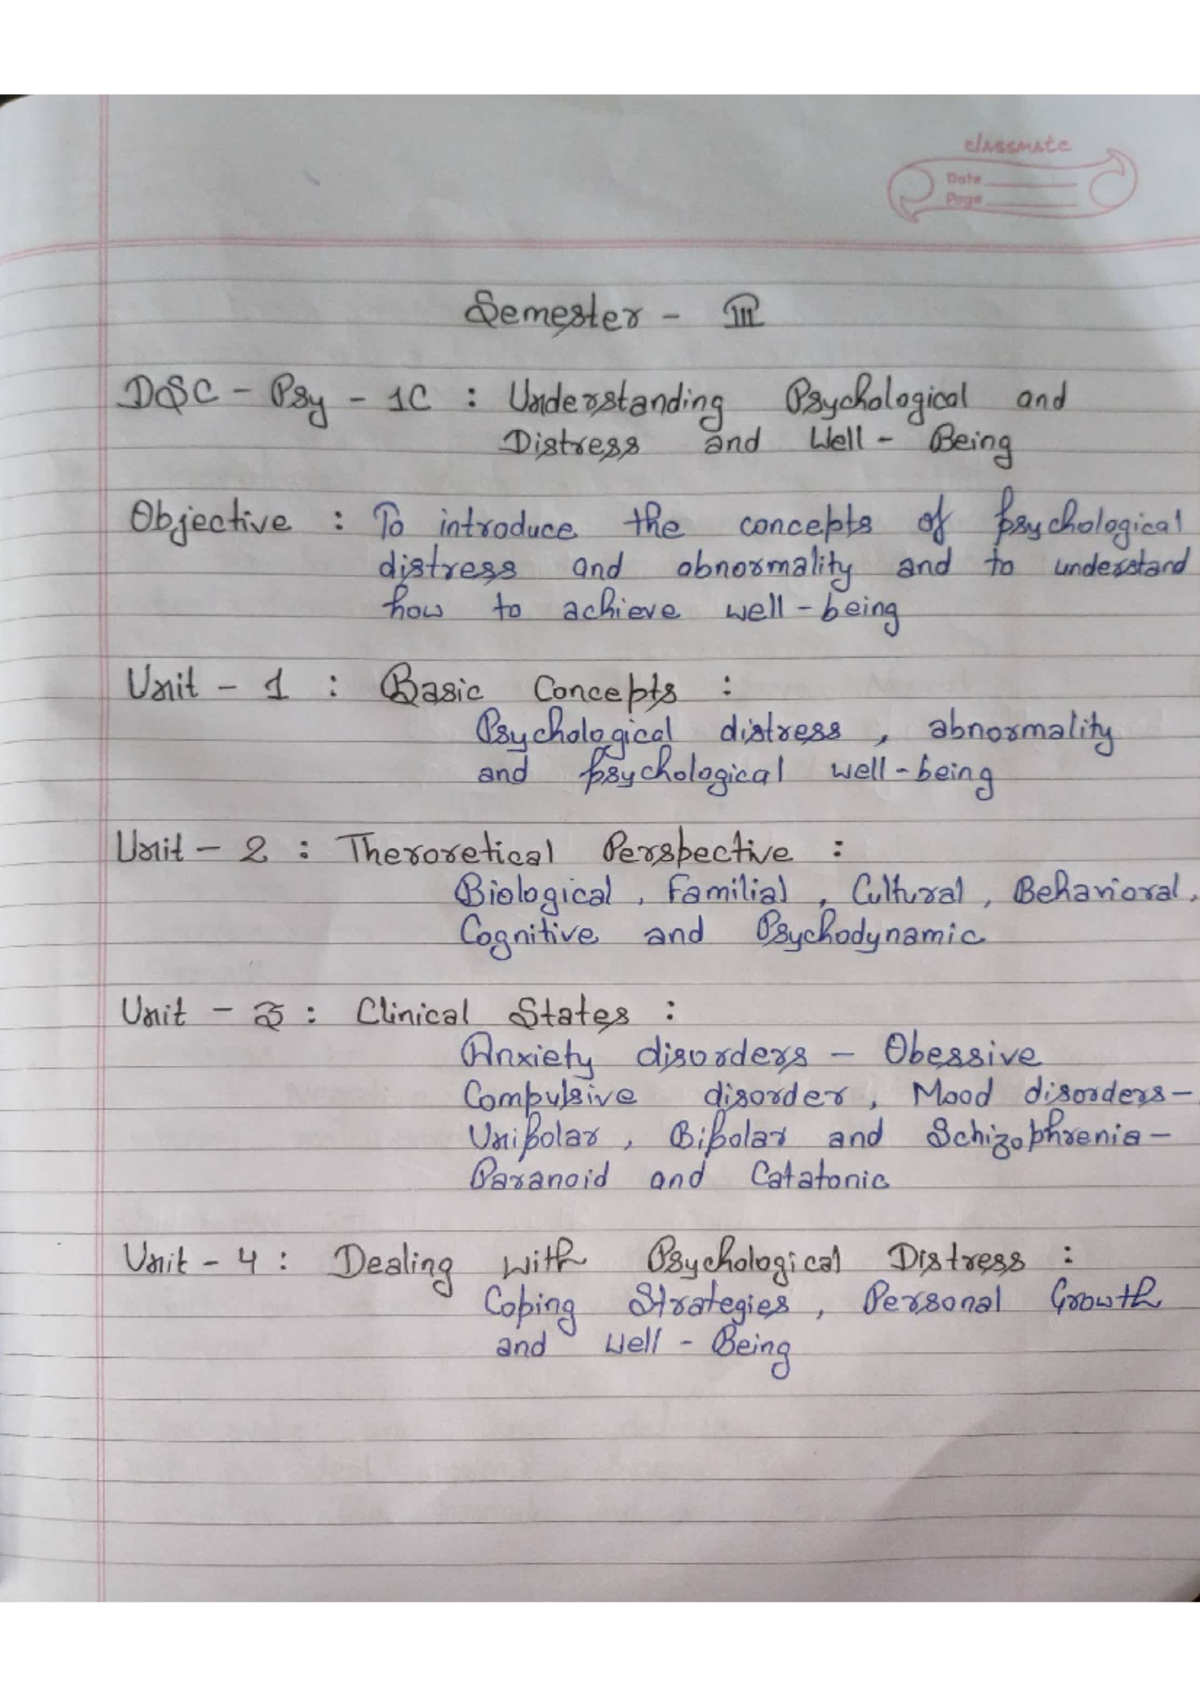 classmate
Date
Page
Semester - III
DSC - Psy - 1C : Understanding Psychological and
Distress and Well - Being
Objective : To introduce the concepts of psychological
distress and abnormality and to understand
how to achieve well - being
Unit - 1 : Basic Concepts :
Psychological distress , abnormality
and psychological well - being
Unit - 2 : Theroretical Perspective :
Biological , Familial , Cultural , Behavioral ,
Cognitive and Psychodynamic
Unit - 3 : Clinical States :
Anxiety disorders - Obessive
Compulsive disorder , Mood disorders -
Unipolar , Bipolar and Schizophrenia -
Paranoid and Catatonic
Unit - 4 : Dealing with Psychological Distress :
Coping Strategies , Personal Growth
and Well - Being